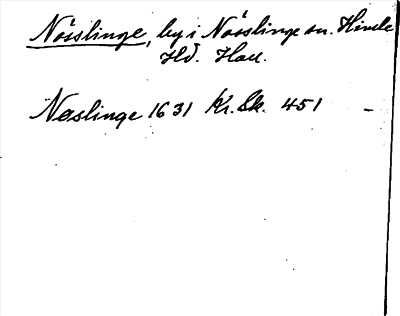 Nösslinge, by i Nösslinge sn. Himle
Hd. Hall.
Nøslinge 1631 Kr. Sk. 451 –